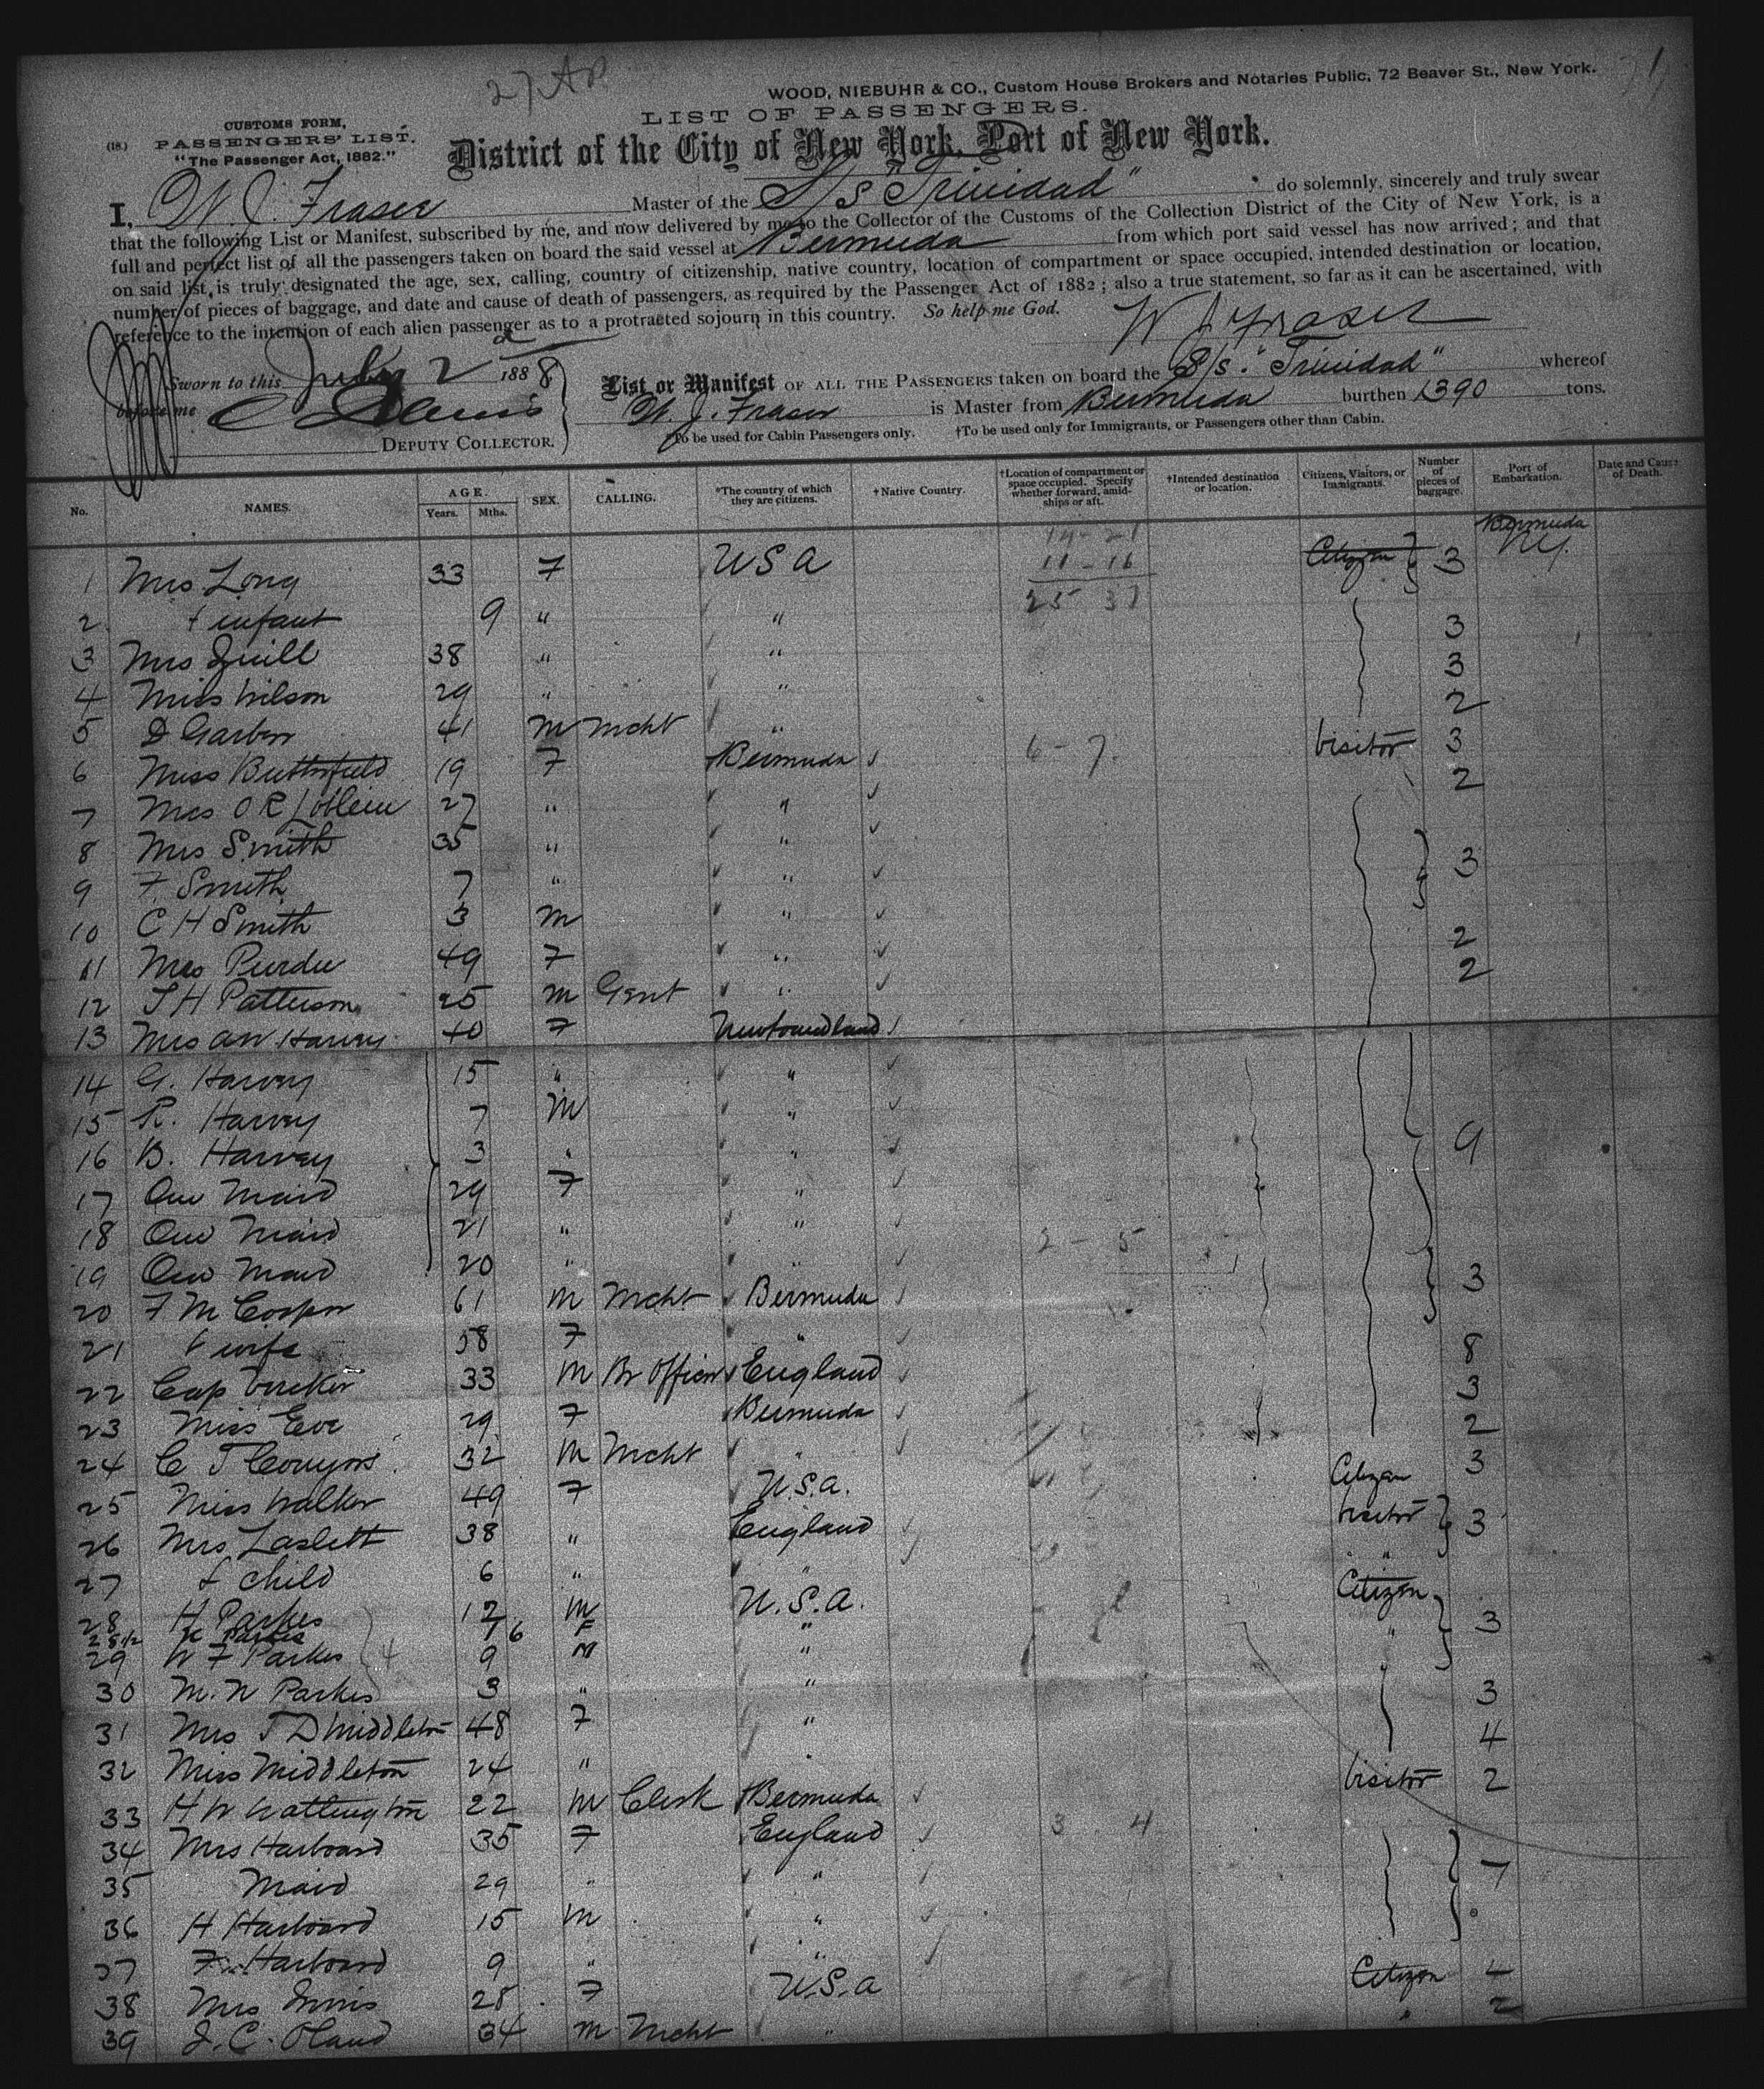 27 Ap
71
WOOD, NIEBUHR & CO., Custom House Brokers and Notaries Public, 72 Beaver St., New York.
LIST OF PASSENGERS.
(18.)
CUSTOMS FORM,
PASSENGERS' LIST.
"The Passenger Act, 1882."
District of the City of New York, Port of New York.
I, W. J. Fraser Master of the S/S "Trinidad" do solemnly, sincerely and truly swear
that the following List or Manifest, subscribed by me, and now delivered by me to the Collector of the Customs of the Collection District of the City of New York, is a
full and perfect list of all the passengers taken on board the said vessel at Bermuda from which port said vessel has now arrived; and that
on said list is truly designated the age, sex, calling, country of citizenship, native country, location of compartment or space occupied, intended destination or location,
number of pieces of baggage, and date and cause of death of passengers, as required by the Passenger Act of 1882; also a true statement, so far as it can be ascertained, with
reference to the intention of each alien passenger as to a protracted sojourn in this country. So help me God.
W J Fraser
Sworn to this July 2d 1888
before me
DEPUTY COLLECTOR.
List or Manifest OF ALL THE PASSENGERS taken on board the S/S. "Trinidad" whereof
W. J. Fraser is Master from Bermuda burthen 1390 tons.
*To be used for Cabin Passengers only. †To be used only for Immigrants, or Passengers other than Cabin.
No. NAMES. AGE. Years. Mths. SEX. CALLING. *The country of which they are citizens. †Native Country. †Location of compartment or space occupied. Specify whether forward, amidships or aft. †Intended destination or location. Citizens, Visitors, or Immigrants. Number of pieces of baggage. Port of Embarkation. Date and Cause of Death.
Bermuda
14 - 21
11 - 16
25 37
1 Mrs Long 33 F U S A Citizen 3 NY.
2 + infant 9 " "
3 Mrs 38 " " 3
4 Miss Wilson 29 " " 3
5 D 41 M Mcht " 2
6 Miss Butterfield 19 F Bermuda 6 - 7 Visitor 3
7 Mrs O R 27 " " 2
8 Mrs Smith 35 " "
9 F Smith 7 " " 3
10 C H Smith 3 M "
11 Mrs Purdue 49 F " 2
12 J H Patterson 25 M Gent " 2
13 Mrs A W Harvey 40 F Newfoundland
14 G. Harvey 15 " "
15 R. Harvey 7 M "
16 B. Harvey 3 " " 9
17 One Maid 29 F "
18 One Maid 21 " "
19 One Maid 20 " " 2 - 5
20 F M Cooper 61 M Mcht Bermuda 3
21 + wife 58 F "
22 Cap Tucker 33 M Br Officer England 8
23 Miss Eve 29 F Bermuda 3
24 C J Conyers 32 M Mcht " 2
25 Miss Walker 49 F U.S.A. Citizen 3
26 Mrs Laslett 38 " England Visitor 3
27 + child 6 " " "
28 H Parkes 12 M U.S.A. Citizen
28 1/2 Parkes 7 6 F " " 3
29 W F Parkes 9 M "
30 M. W Parkes 3 " "
31 Mrs J D Middleton 48 F " 3
32 Miss Middleton 24 " " 4
33 H W Watlington 22 M Clerk Bermuda Visitor 2
34 Mrs Harboard 35 F England 3 4
35 Maid 29 " " 7
36 H Harboard 15 M "
37 F. Harboard 9 " "
38 Mrs 28 F U.S.A Citizen
39 J. C. Oland 34 M Mcht " " 2